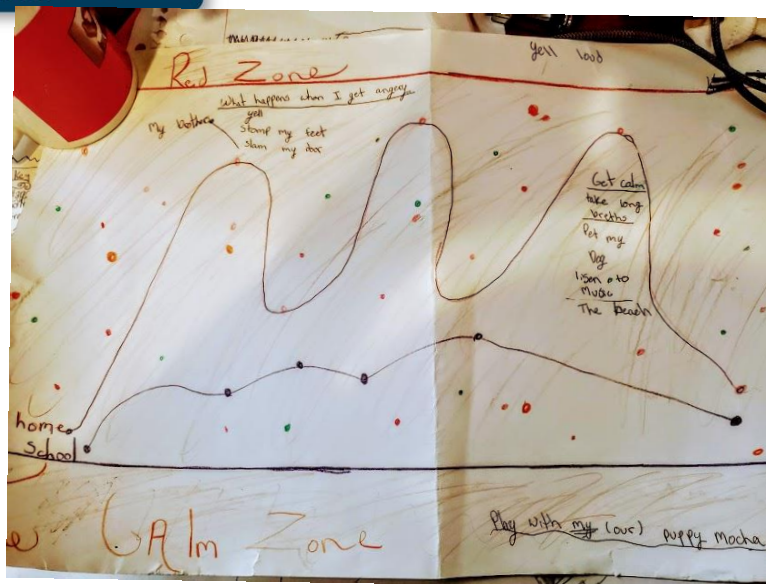 yell loud
Red Zone
What happens when I get angery
yell
stomp my feet
slam my door
My brother
Get calm
take long
breths
Pet my
Dog
lisen oto
Music
The beach
home
School
CAlm Zone
Play with my (our) puppy Mocha